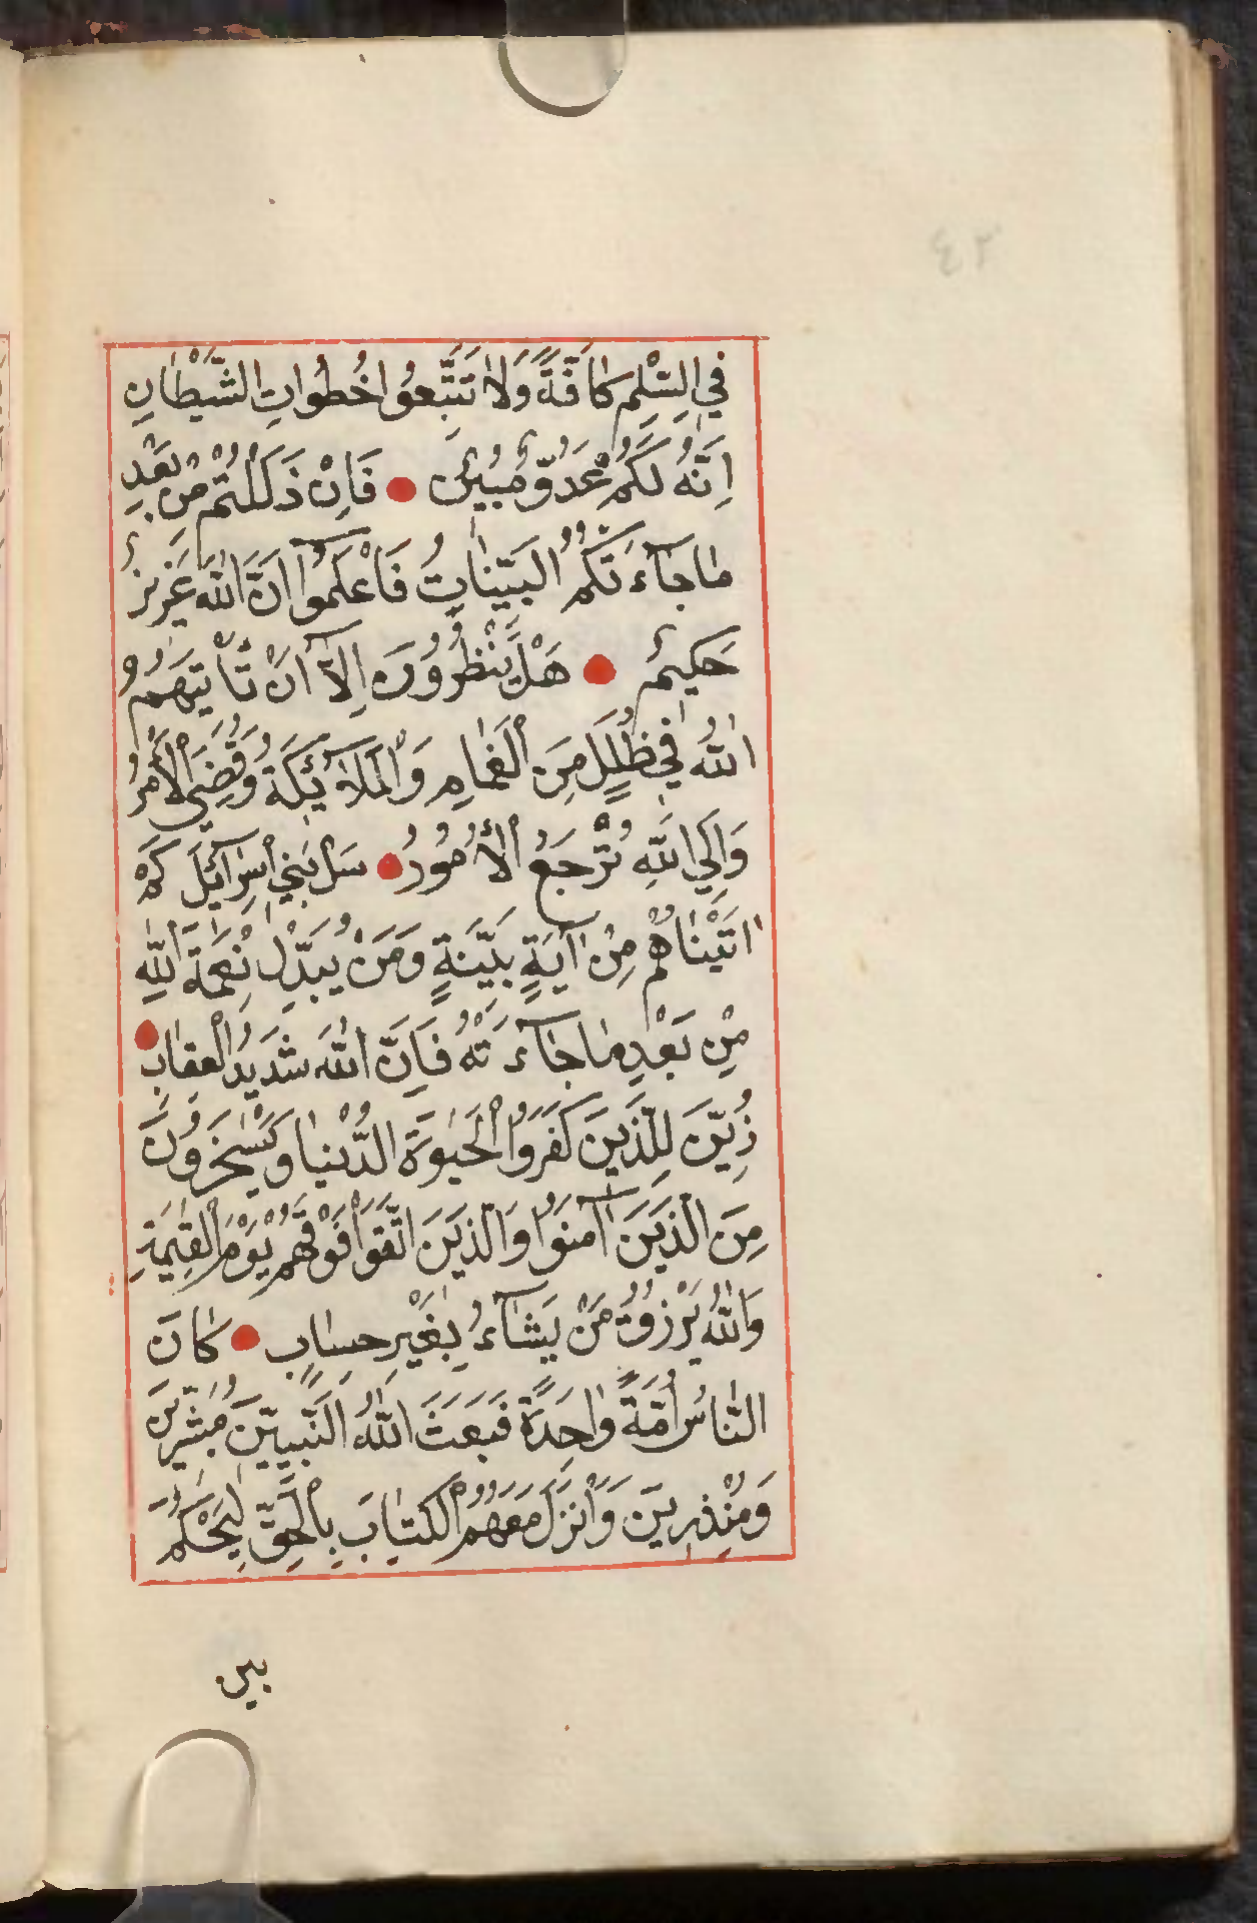 ٤٣
فِي السِّلْمِ كَافَّةً وَلَا تَتَّبِعُوا خُطُوَاتِ الشَّيْطَانِ
اِنَّهُ لَكُمْ عَدُوٌّ مُبِينٌ ● فَاِنْ زَلَلْتُمْ مِنْ بَعْدِ
مَا جَآءَتْكُمُ الْبَيِّنَاتُ فَاعْلَمُوٓا اَنَّ اللّٰهَ عَزِيزٌ
حَكِيمٌ ● هَلْ يَنْظُرُونَ اِلَّآ اَنْ يَأْتِيَهُمُ
اللّٰهُ فِي ظُلَلٍ مِنَ الْغَمَامِ وَالْمَلَآئِكَةُ وَقُضِيَ الْاَمْرُ
وَاِلَى اللّٰهِ تُرْجَعُ الْاُمُورُ ● سَلْ بَنِي اِسْرَآئِلَ كَمْ
اٰتَيْنَاهُمْ مِنْ اٰيَةٍ بَيِّنَةٍ وَمَنْ يُبَدِّلْ نِعْمَةَ اللّٰهِ
مِنْ بَعْدِ مَا جَآءَتْهُ فَاِنَّ اللّٰهَ شَدِيدُ الْعِقَابِ ●
زُيِّنَ لِلَّذِينَ كَفَرُوا الْحَيٰوةُ الدُّنْيَا وَيَسْخَرُونَ
مِنَ الَّذِينَ اٰمَنُوا وَالَّذِينَ اتَّقَوْا فَوْقَهُمْ يَوْمَ الْقِيٰمَةِ
وَاللّٰهُ يَرْزُقُ مَنْ يَشَآءُ بِغَيْرِ حِسَابٍ ● كَانَ
النَّاسُ اُمَّةً وَاحِدَةً فَبَعَثَ اللّٰهُ النَّبِيِّينَ مُبَشِّرِينَ
وَمُنْذِرِينَ وَاَنْزَلَ مَعَهُمُ الْكِتَابَ بِالْحَقِّ لِيَحْكُمَ
بين